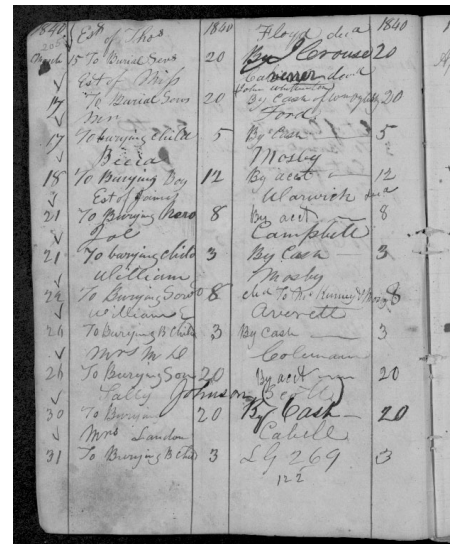 1840 Est of Thos 1840 Floyd decd 1840
March 15 To Burial Serv 20 By J Crouse 20
Est of Miss
17 To Burial Serv 20 By Cash of 20
Mrs Ford
17 To burying child 5 By Cash 5
Mosby
18 To Burying Boy 12 By acct 12
Est of James Warwick decd
21 To Burying 8 By acct 8
Campbell
21 To burying child 3 By Cash 3
William Mosby
24 To Burying 8 8
William Averett
26 To Burying B Child 3 By Cash 3
Mrs M Coleman
26 To Burying Son 20 By acct 20
Sally Johnson Scott
30 To Buryin 20 By Cash 20
Mrs Landon Cabell
31 To Burying B Chd 3 LG 269 3
122